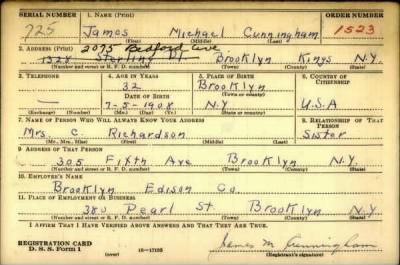 SERIAL NUMBER 1. NAME (Print) ORDER NUMBER
725 James Michael Cunningham 1523
(First) (Middle) (Last)
2. ADDRESS (Print) 2075 Bedford Ave
1328 Sterling Pl Brooklyn Kings N.Y.
(Number and street or R. F. D. number) (Town) (County) (State)
3. TELEPHONE 4. AGE IN YEARS 5. PLACE OF BIRTH 6. COUNTRY OF CITIZENSHIP
32 Brooklyn
DATE OF BIRTH (Town or county)
— 7-5-1908 N.Y U.S.A
(Exchange) (No.) (Mo.) (Day) (Yr.) (State or country)
7. NAME OF PERSON WHO WILL ALWAYS KNOW YOUR ADDRESS 8. RELATIONSHIP OF THAT PERSON
Mrs. C. Richardson Sister
(Mr., Mrs., Miss) (First) (Middle) (Last)
9. ADDRESS OF THAT PERSON
305 Fifth Ave Brooklyn N.Y.
(Number and street or R. F. D. number) (Town) (County) (State)
10. EMPLOYER'S NAME
Brooklyn Edison Co.
11. PLACE OF EMPLOYMENT OR BUSINESS
380 Pearl St. Brooklyn N.Y
(Number and street or R. F. D. number) (Town) (County) (State)
I AFFIRM THAT I HAVE VERIFIED ABOVE ANSWERS AND THAT THEY ARE TRUE.
REGISTRATION CARD
D. S. S. Form 1 (over) 16—17105 James M Cunningham
(Registrant's signature)